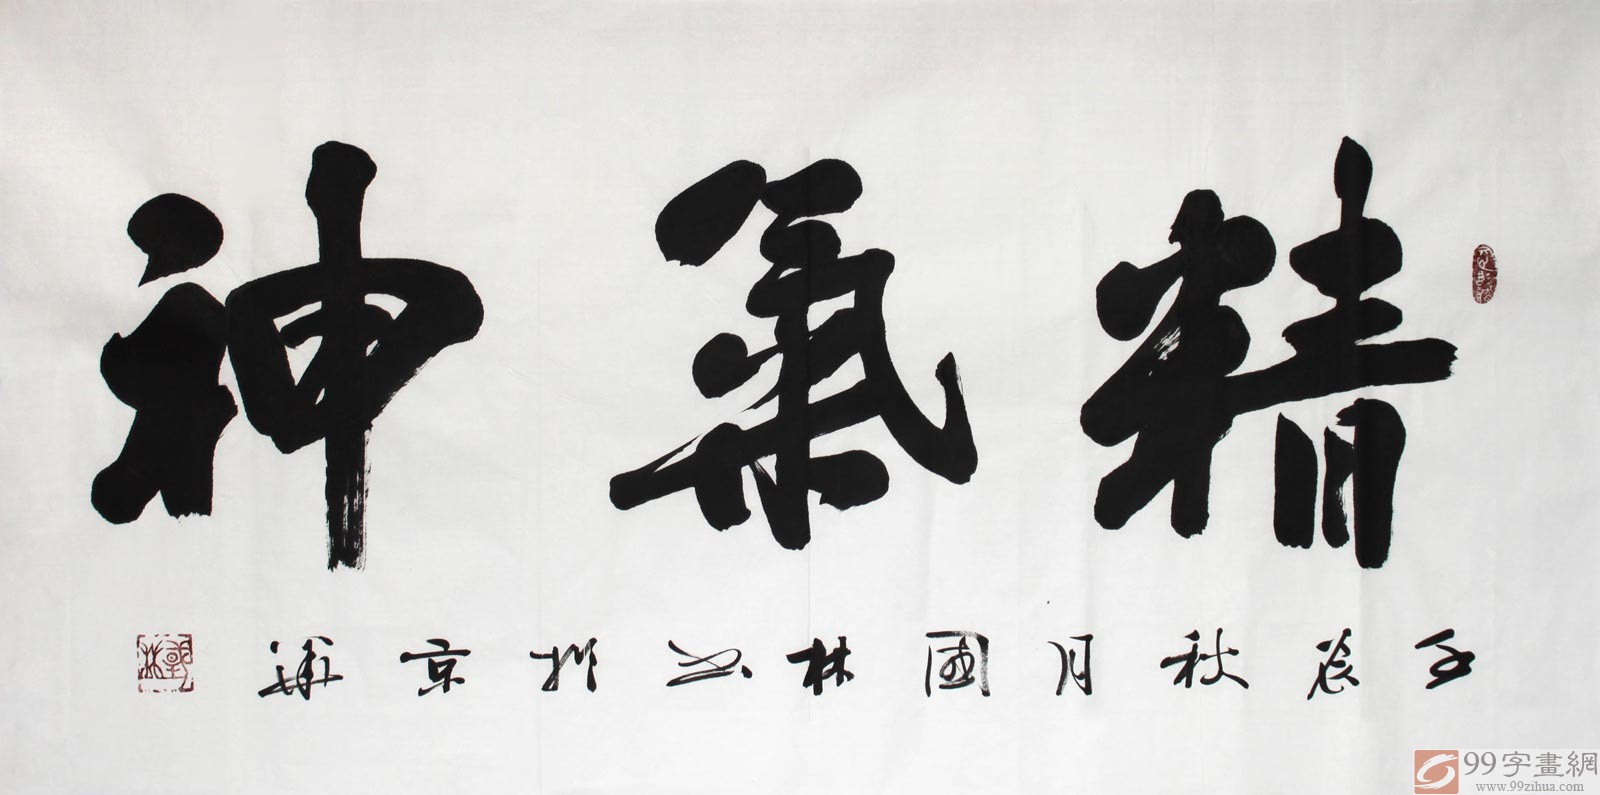 精氣神
壬辰秋月國林書於京華
99字畫網
www.99zihua.com